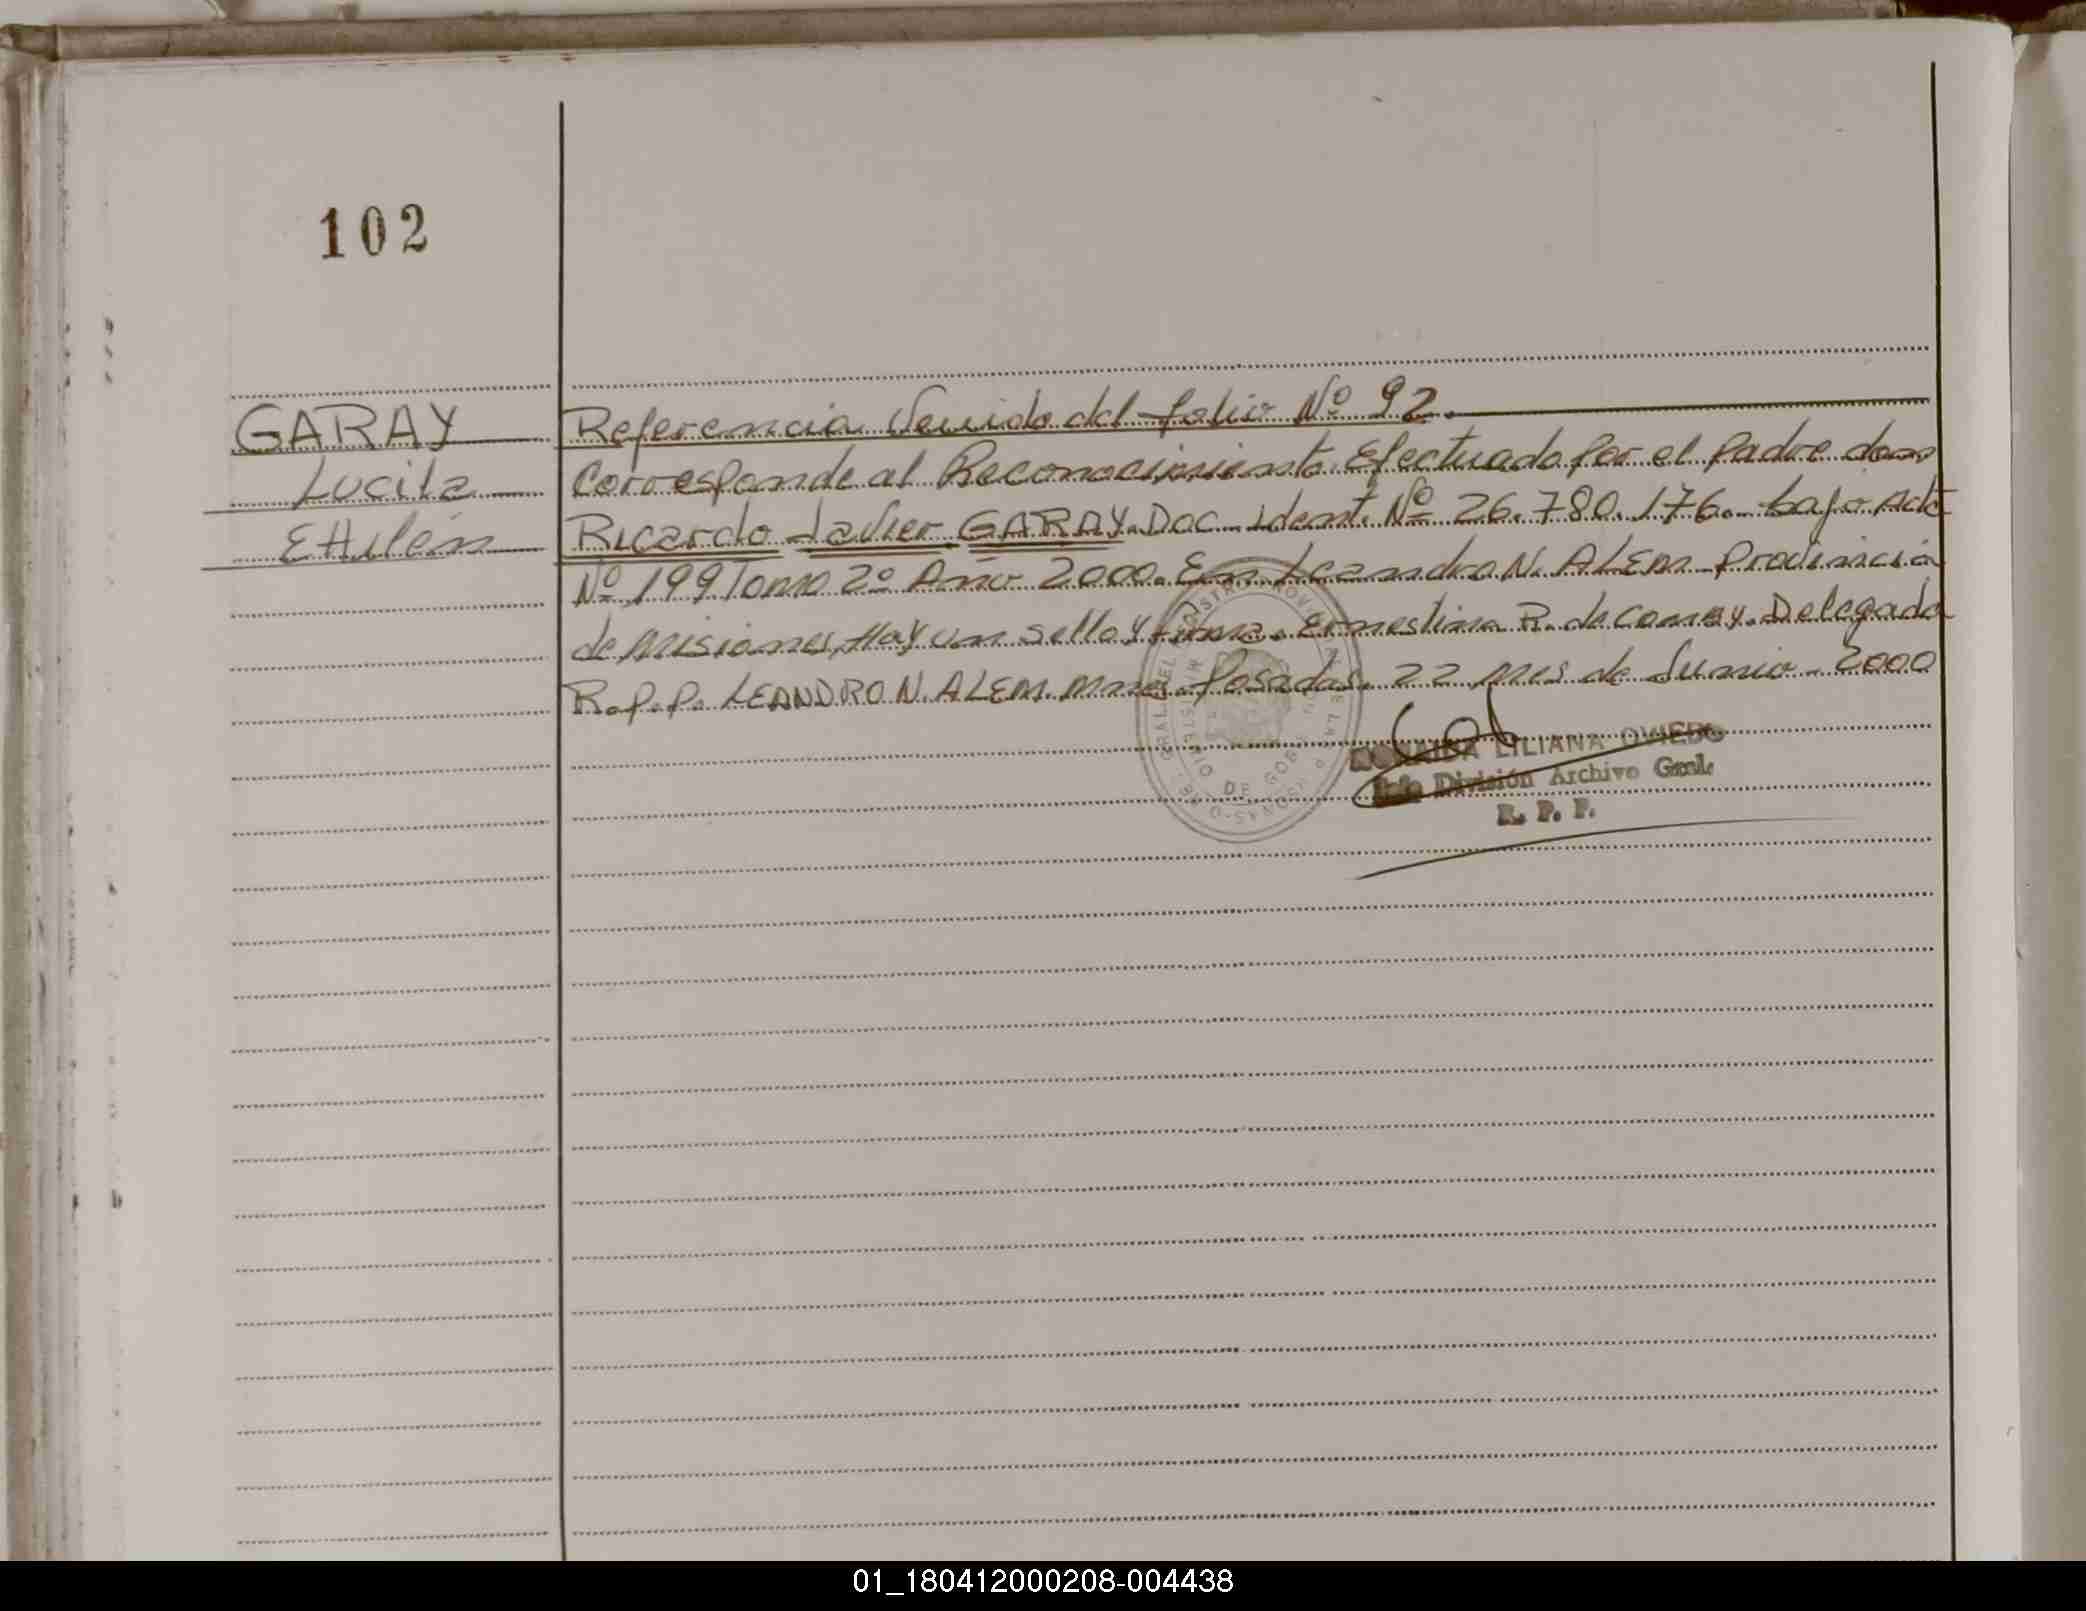 102
GARAY
Lucila
EHilén
Referencia Venido del folio Nº 92.
Corresponde al Reconocimiento Efectuado por el padre don
Ricardo Javier GARAY. Doc. ident. Nº 26.780.176. bajo Acta
Nº 199 Tomo 2º Año 2000. En Leandro N. ALEM provincia
de Misiones, Hay un sello y firma. Ernestina R. de Delegada
R.P.P. LEANDRO N. ALEM. Mnes. Posadas. 22 mes de Junio - 2000
LILIANA OVIEDO
Jefe División Archivo Gral.
R. P. P.
01_180412000208-004438